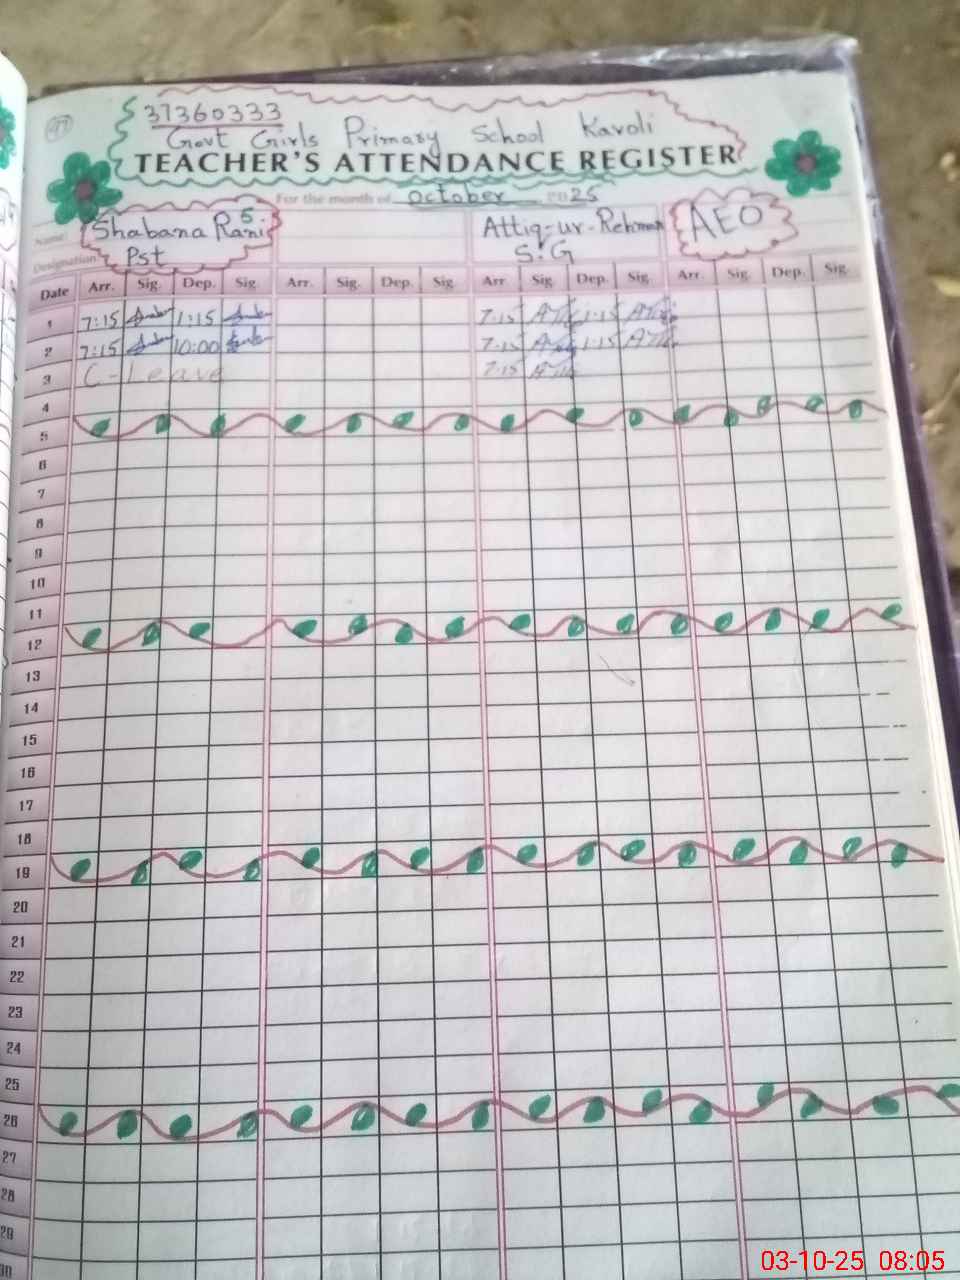 47
37360333
Govt Girls Primary School Karoli
TEACHER'S ATTENDANCE REGISTER
For the month of October 2025
Name: Shabana Rani 5. Attiq-ur-Rehman AEO
Designation: Pst S.G
Date Arr. Sig. Dep. Sig. Arr. Sig. Dep. Sig. Arr Sig. Dep. Sig. Arr. Sig. Dep. Sig.
1 7:15 1:15 7:15 1:15
2 7:15 10:00 7:15 1:15
3 C-Leave 7:15
4
5
6
7
8
9
10
11
12
13
14
15
16
17
18
19
20
21
22
23
24
25
26
27
28
29
30
03-10-25 08:05